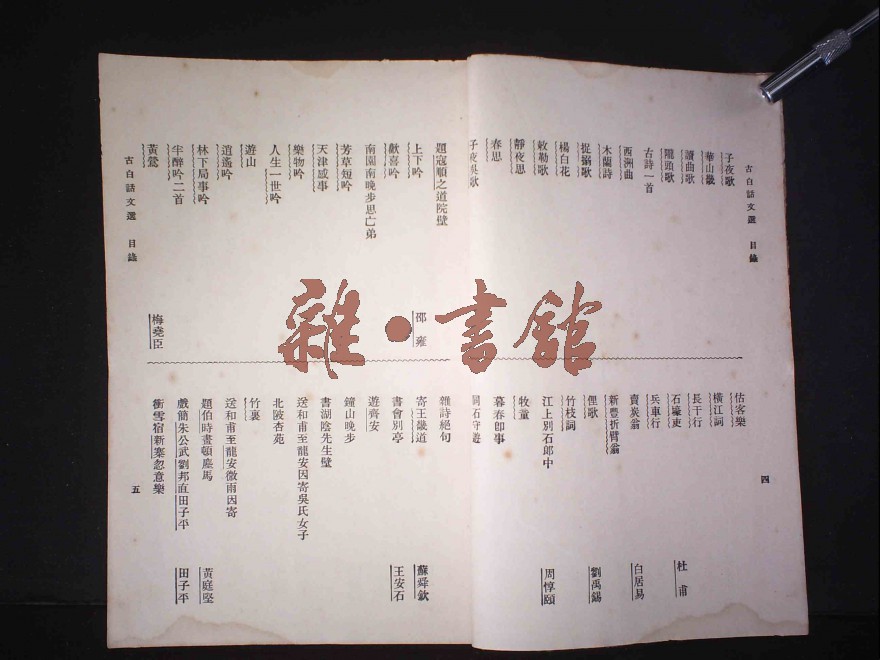 古白話文選　目錄
子夜歌
華山畿
讀曲歌
隴頭歌
古詩一首
西洲曲
木蘭詩
捉搦歌
楊白花
敕勒歌
靜夜思
春思
子夜吳歌
估客樂
橫江詞
長干行
石壕吏　杜甫
兵車行
賣炭翁　白居易
新豐折臂翁
俚歌　劉禹錫
竹枝詞
江上別石郎中　周惇頤
牧童
暮春卽事
同石守遊
四
題寇順之道院壁
上下吟　邵雍
歡喜吟
南園南晚步思亡弟
芳草短吟
天津感事
樂物吟
人生一世吟
遊山
逍遙吟
林下局事吟
半醉吟二首
黃鶯　梅堯臣
雜詩絕句
寄王畿道　蘇舜欽
書會別亭　王安石
遊齊安
鐘山晚步
書湖陰先生壁
送和甫至龍安因寄吳氏女子
北陂杏苑
竹裏
送和甫至龍安微雨因寄
題伯時畫頓塵馬　黃庭堅
戲簡朱公武劉邦直田子平　田子平
衝雪宿新寨忽意樂
古白話文選　目錄
五
雜·書館